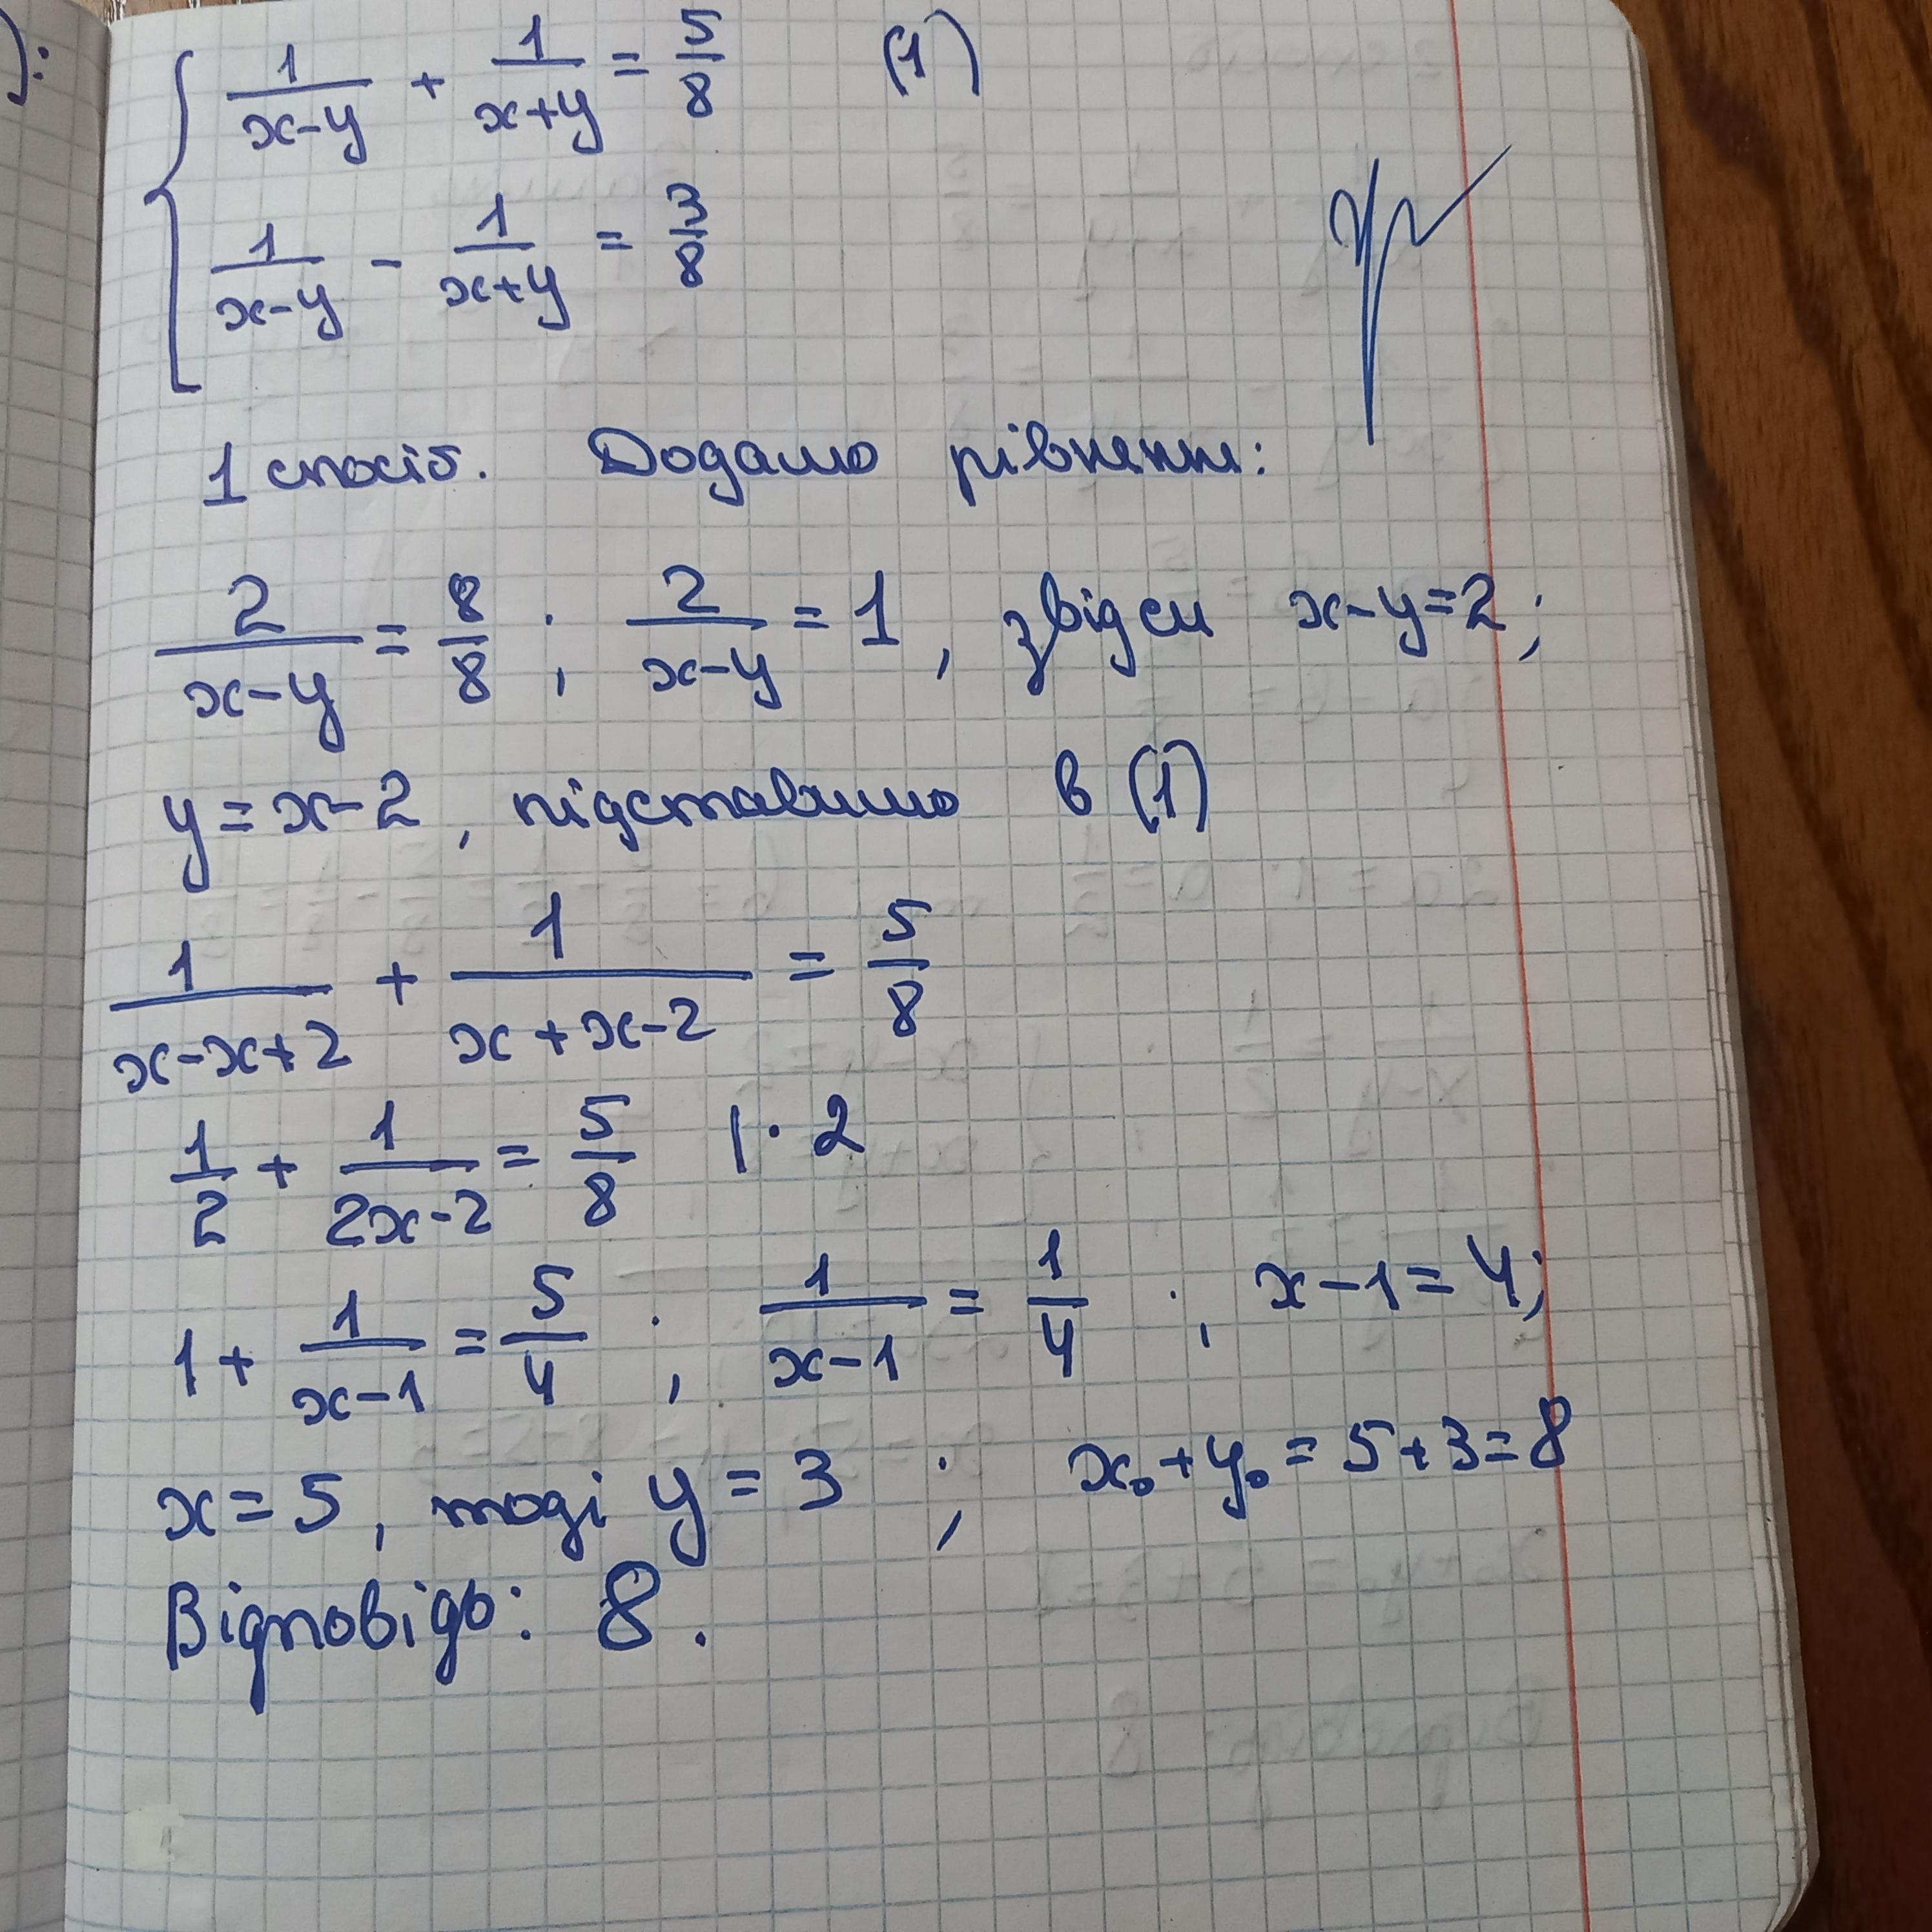 ):
1/(x-y) + 1/(x+y) = 5/8 (1)
1/(x-y) - 1/(x+y) = 3/8
1 спосіб. Додамо рівняння:
2/(x-y) = 8/8 ; 2/(x-y) = 1, звідси x-y=2;
y=x-2, підставимо в (1)
1/(x-x+2) + 1/(x+x-2) = 5/8
1/2 + 1/(2x-2) = 5/8 |·2
1 + 1/(x-1) = 5/4 ; 1/(x-1) = 1/4 ; x-1=4;
x=5, тоді y=3 ; x₀+y₀=5+3=8
Відповідь: 8.